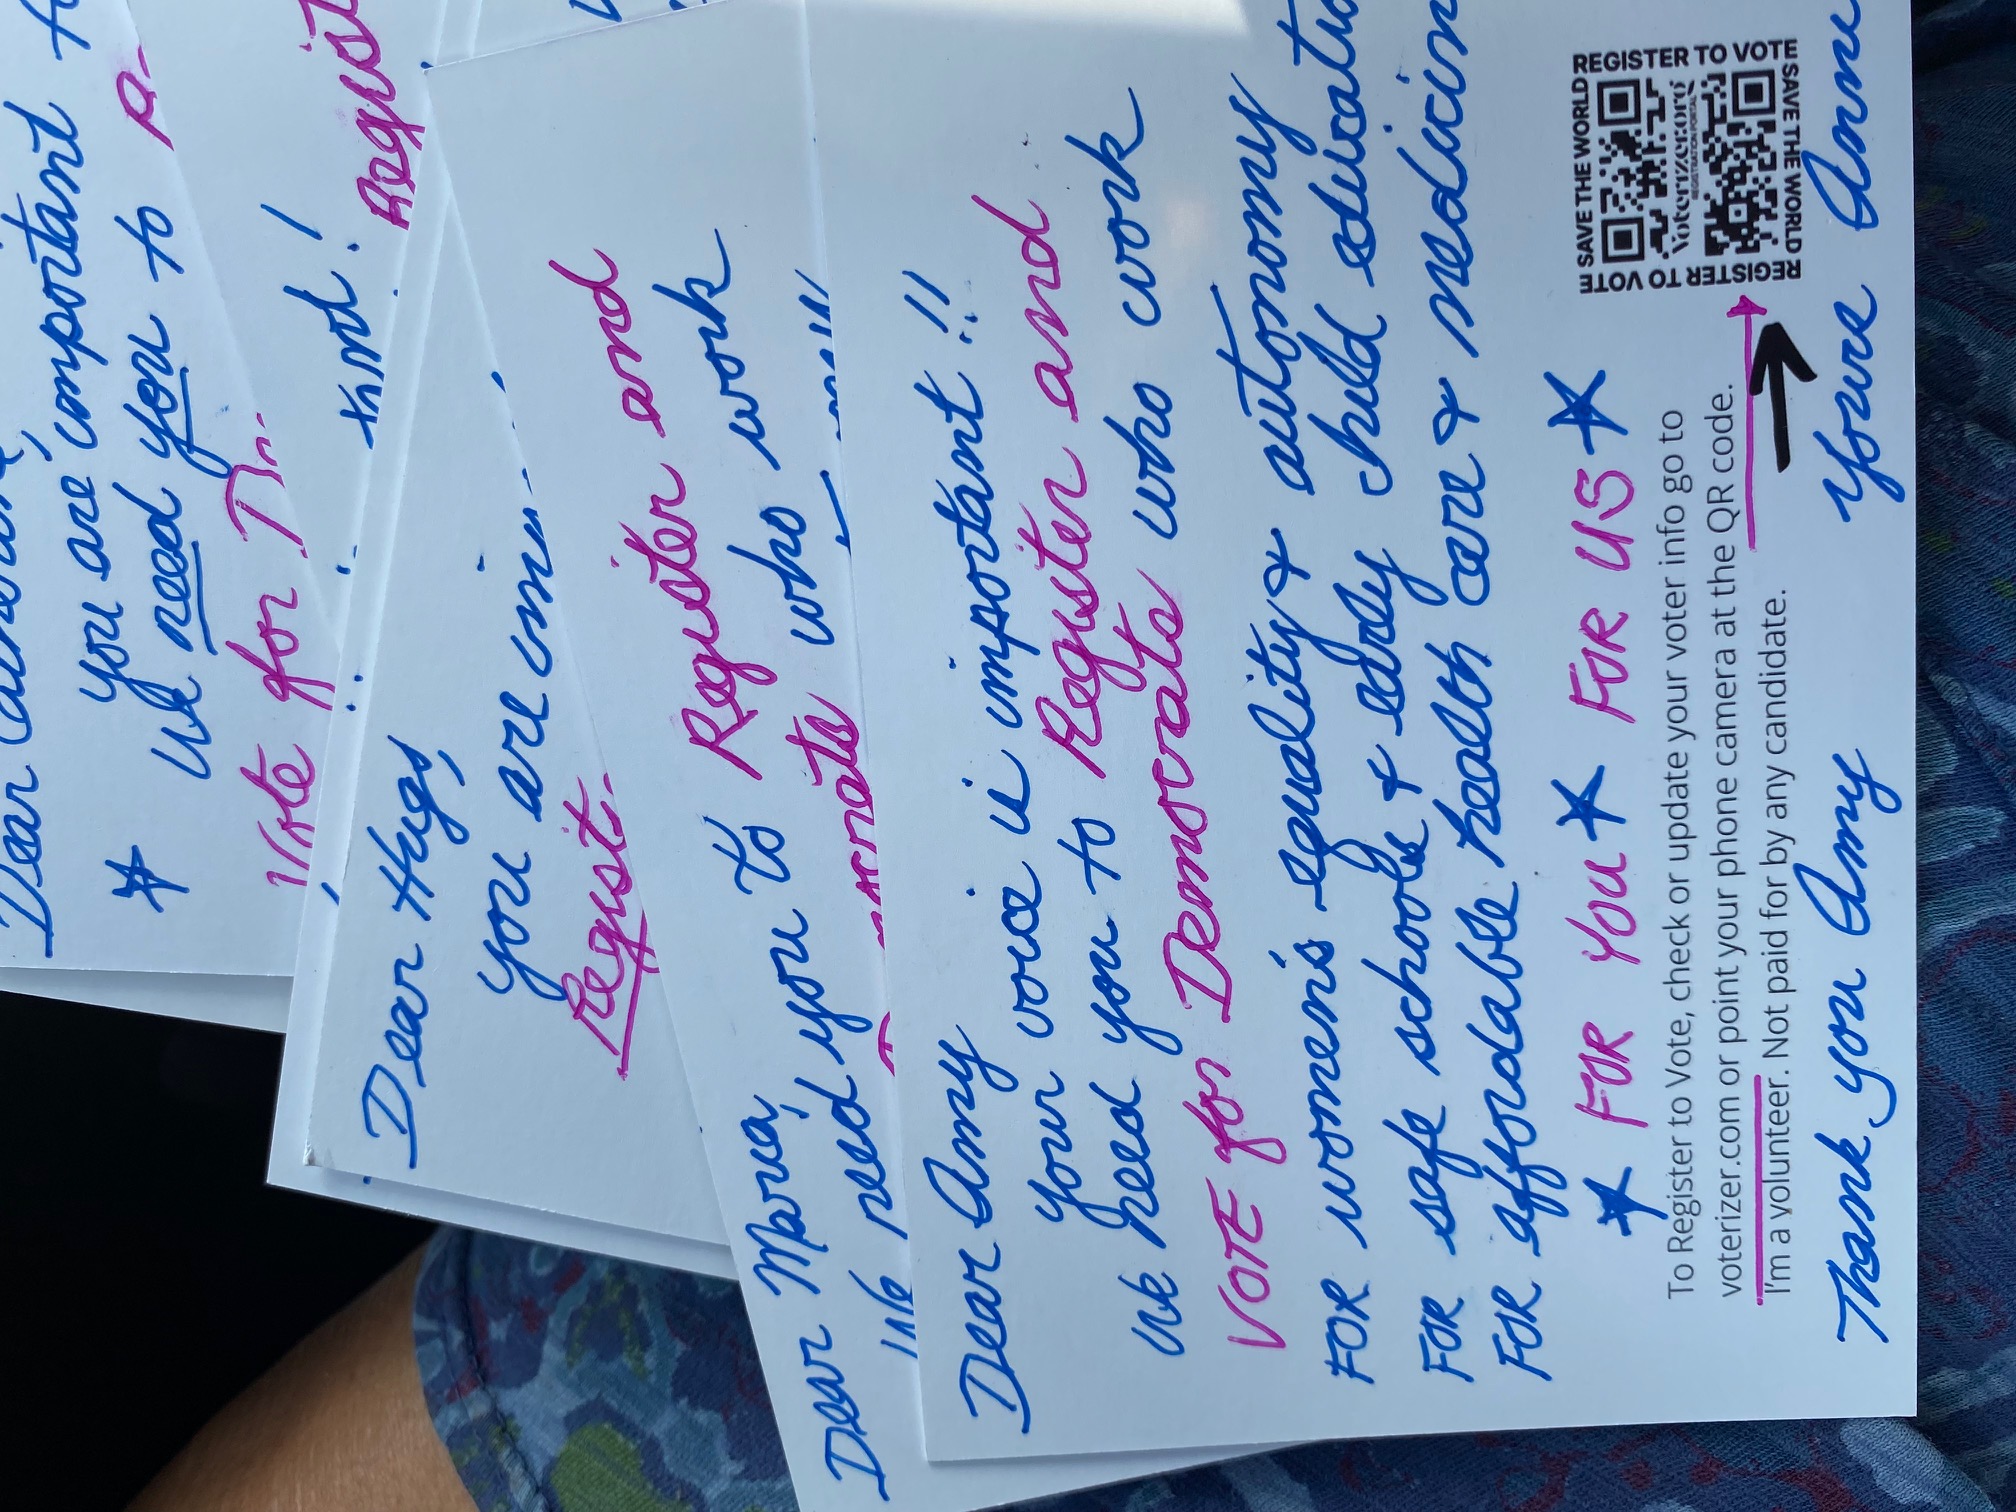 Dear Catherine,
you are important
We need you to
Vote for
!
Regist
Dear Hugs,
you are
Regist
Dear Maria,
We need you to Register and
Democrats who work
Dear Amy
Your voice is important!!
We need you to Register and
VOTE for Democrats who work
FOR women's equality & autonomy
FOR safe schools & early child educatio
FOR affordable health care & medicin
FOR YOU FOR US
To Register to Vote, check or update your voter info go to
voterizer.com or point your phone camera at the QR code.
I'm a volunteer. Not paid for by any candidate.
SAVE THE WORLD
REGISTER TO VOTE
Voterizer.org
REGISTRATION PORTAL
REGISTER TO VOTE
SAVE THE WORLD
Thank you Amy
Yours Anne